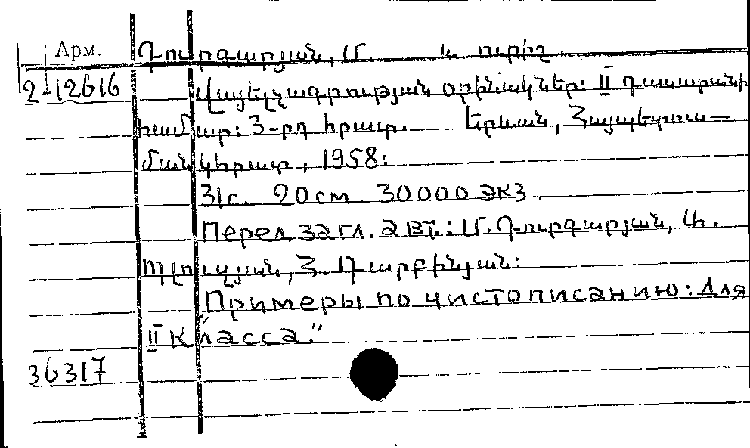 Арм. Դուրգարյան, Մ. և ուրիշ
2-12616 Վայելչագրության օրինակներ: II դասարանի
համար: 3-րդ հրատ. Երևան, Հայպետուս-
մանկհրատ, 1958:
31с. 20см. 30000 экз.
Перел. загл. авт.: Մ. Դուրգարյան,
Հ. Դարբինյան:
Примеры по чистописанию: Для
II класса"
36317